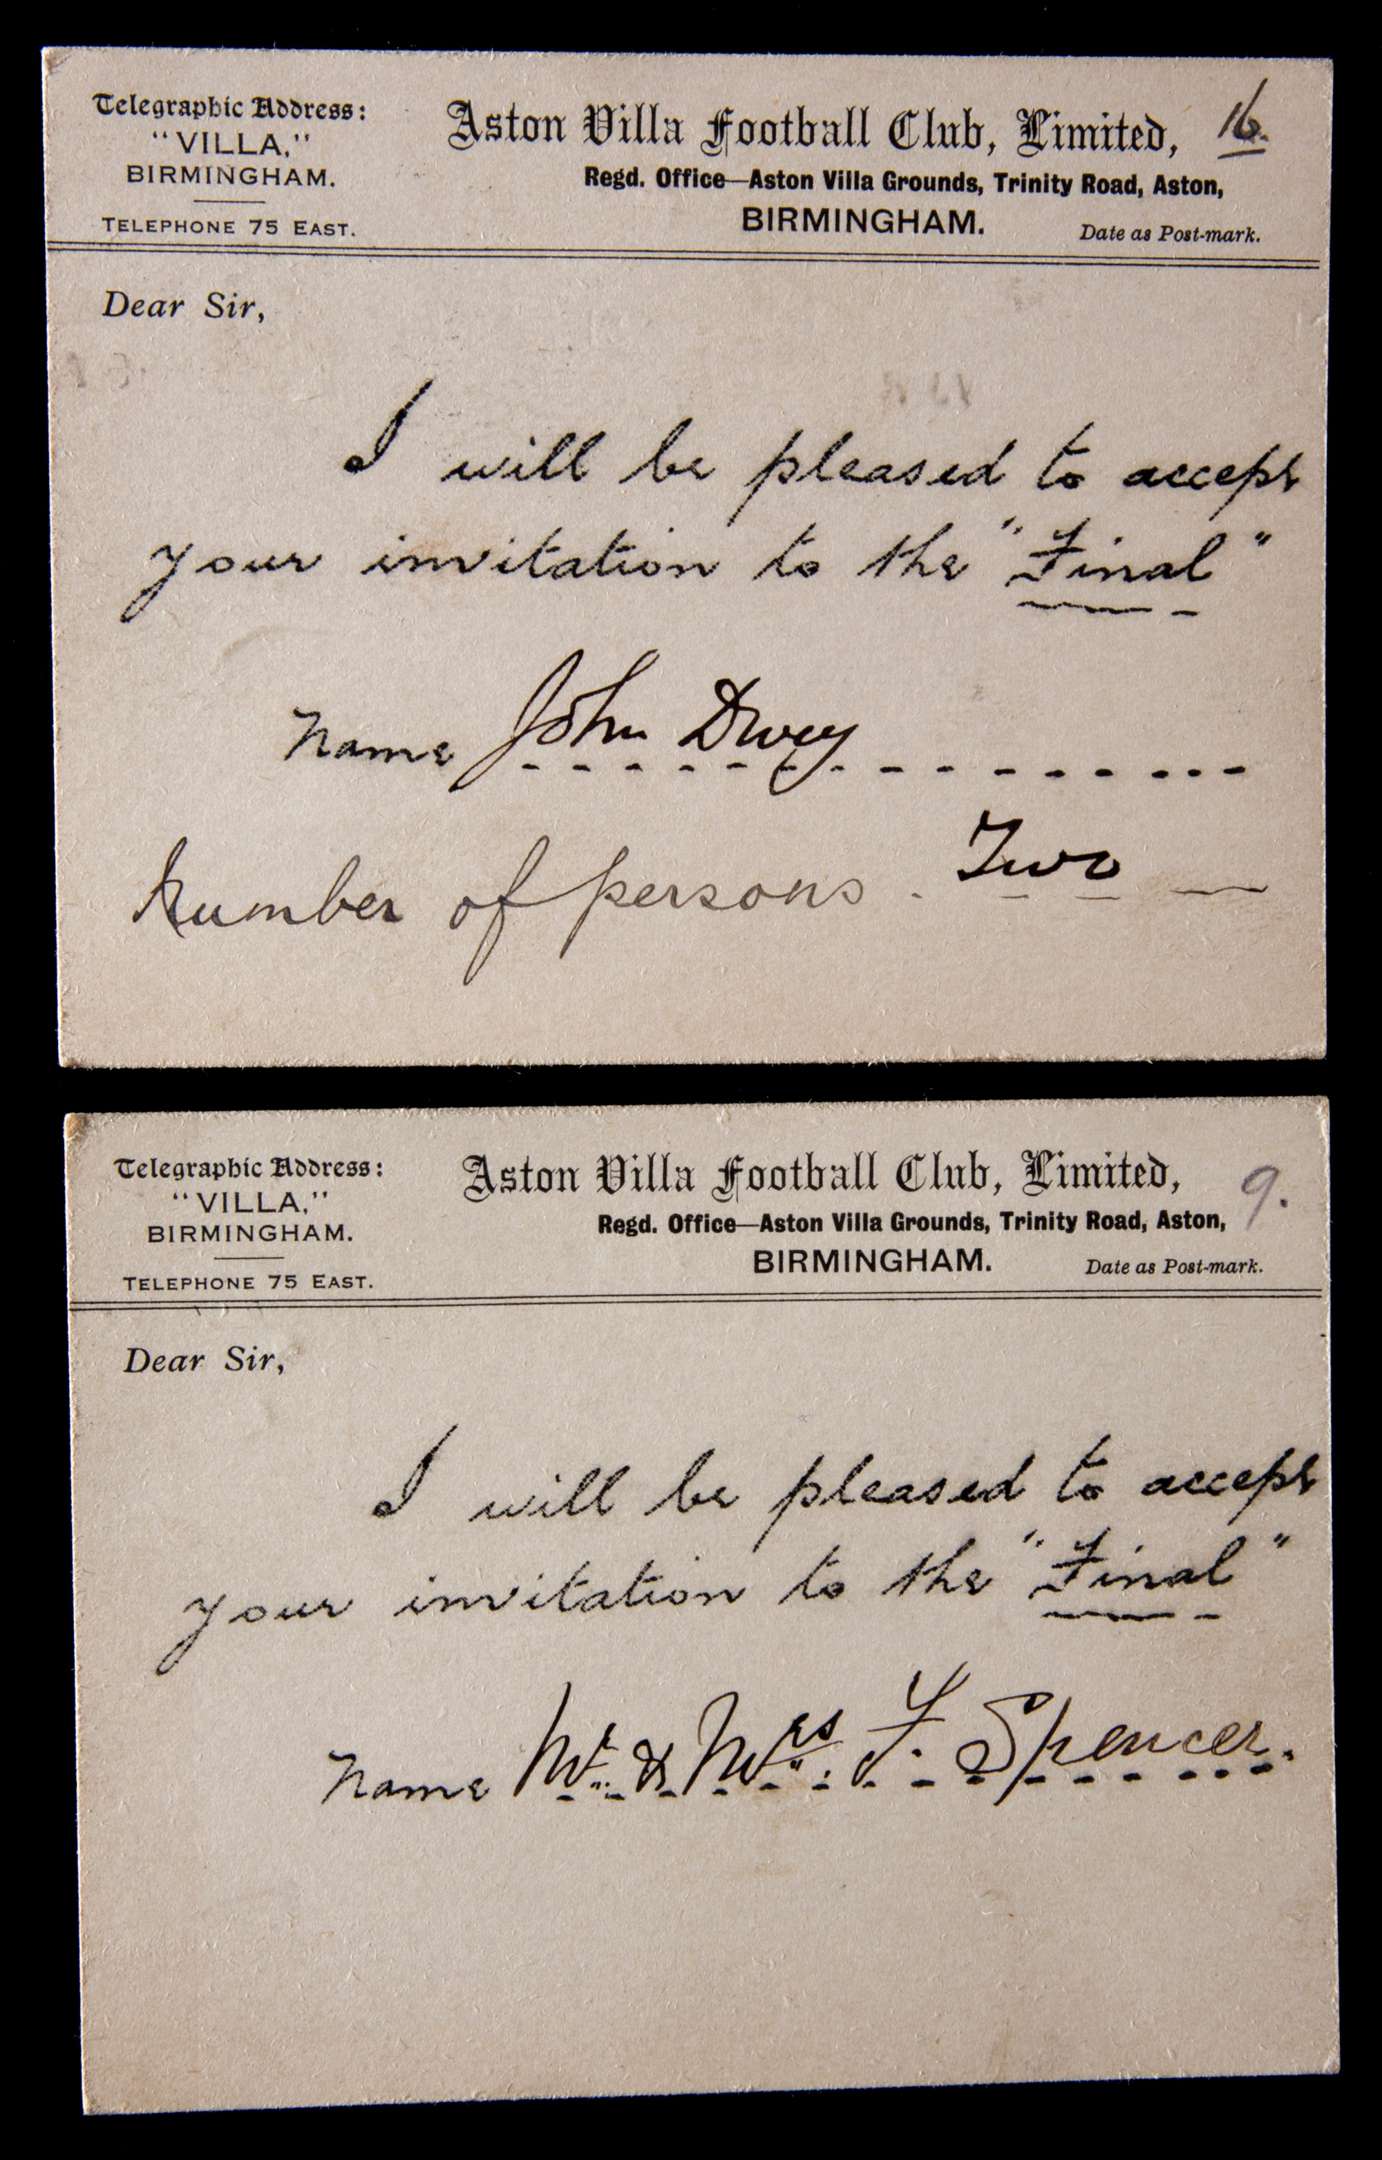 Telegraphic Address:
"VILLA,"
BIRMINGHAM.
TELEPHONE 75 EAST.
Aston Villa Football Club, Limited,
16.
Regd. Office—Aston Villa Grounds, Trinity Road, Aston,
BIRMINGHAM.
Date as Post-mark.
Dear Sir,
I will be pleased to accept
your invitation to the "Final"
Name John
Number of persons. Two
Telegraphic Address:
"VILLA,"
BIRMINGHAM.
TELEPHONE 75 EAST.
Aston Villa Football Club, Limited,
9.
Regd. Office—Aston Villa Grounds, Trinity Road, Aston,
BIRMINGHAM.
Date as Post-mark.
Dear Sir,
I will be pleased to accept
your invitation to the "Final"
Name Mr. & Mrs. F. Spencer.